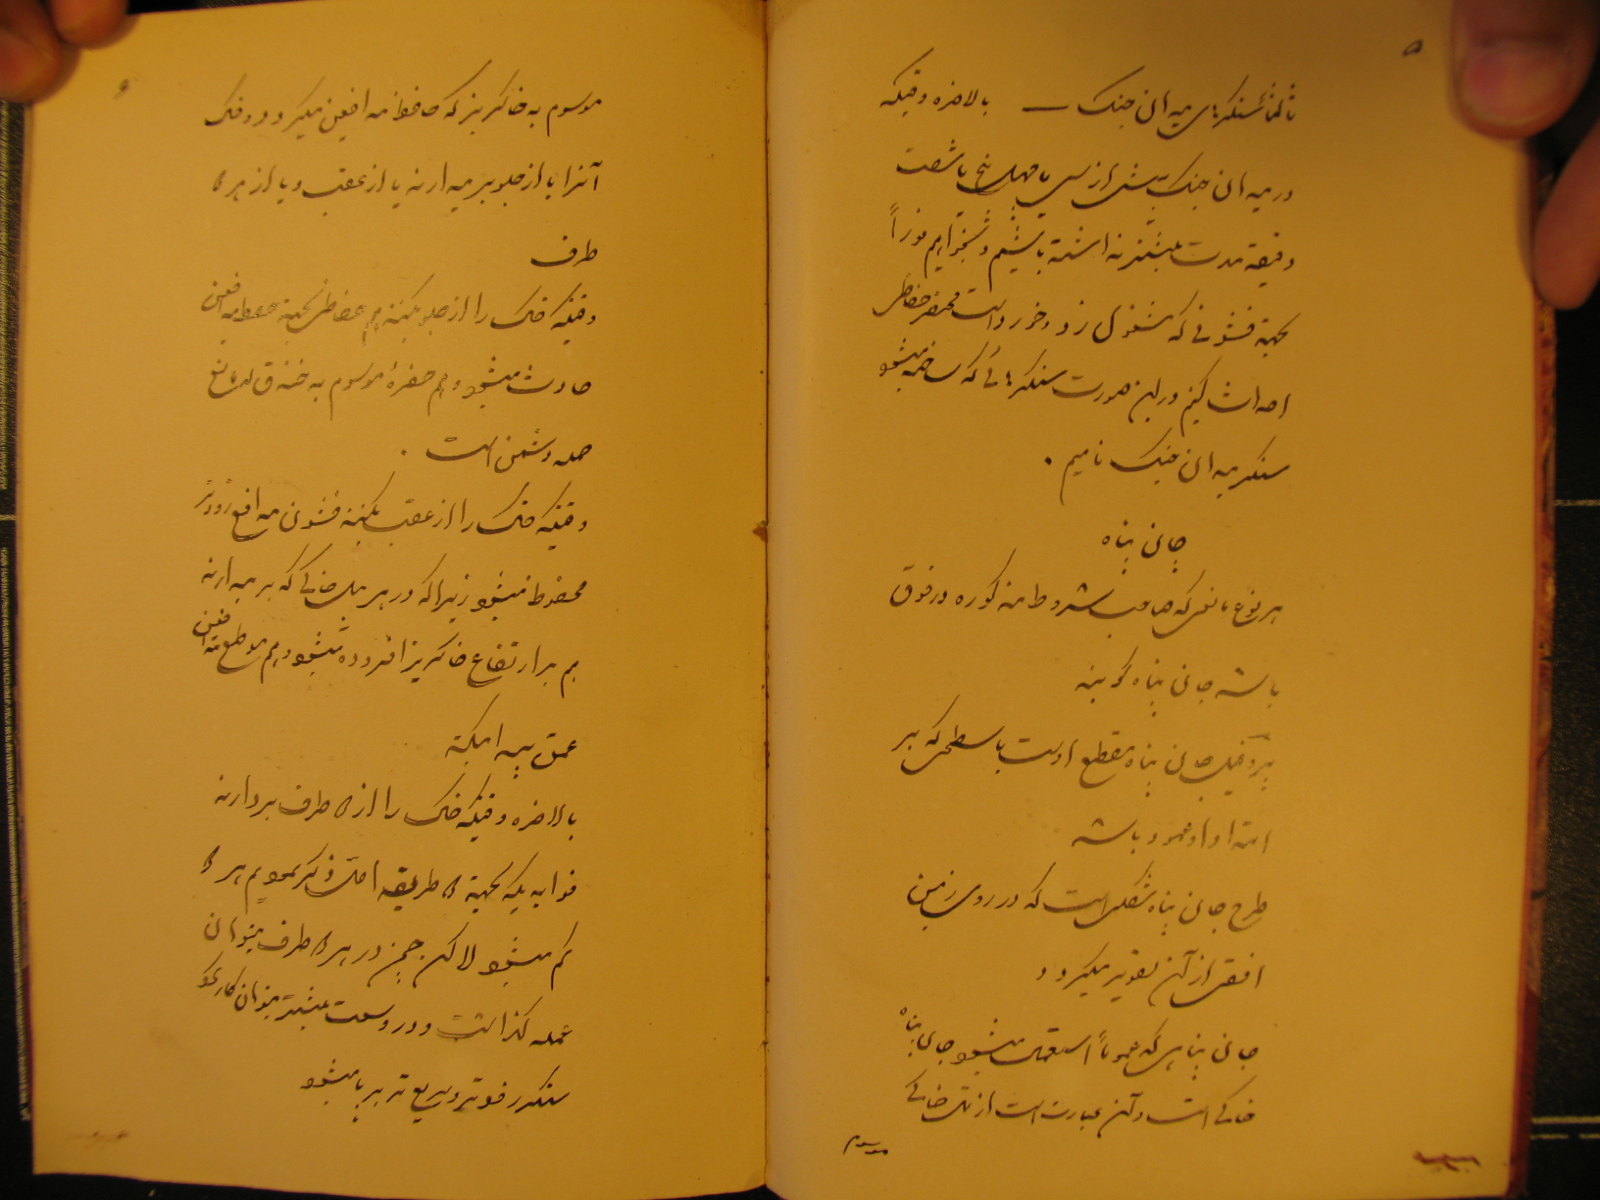 ۵
ثالثاً سنگرهای میدان جنگ — بالاخره وقتیکه
در میدان جنگ بیش از سی یا چهل پنج یا شصت
دقیقه مدت بیشتر نداشته باشیم و بخواهیم فوراً
بجهة قشونی که مشغول زد و خورد است محض حفاظ
احداث کنیم در این صورت سنگرهائی که ساخته میشود
سنگر میدان جنگ نامیم .
جان پناه
هر نوع مانعی که صاحب شروط مذکوره در فوق
باشد جان پناه گویند
پروفیل جان پناه مقطع اوست با سطحی که بر
امتداد او عمود باشد
طرح جان پناه شکلی است که در روی زمین
افقی از آن تصویر میگردد
جان پناهی که عموماً استعمال میشود جان پناه
خاکی است و آن عبارت است از تل خاکی
موسوم
۶
موسوم به خاکریز که حافظ مدافعین میگردد و خاک
آنرا یا از جلو بر میدارند یا از عقب و یا از هر دو
طرف
وقتیکه خاک را از جلو بکنند هم حفاظی بجهة حفظ مدافعین
حادث میشود و هم حفرهٔ موسوم به خندق که مانع
حمله دشمن است .
وقتیکه خاک را از عقب بکنند قشون مدافع زودتر
محفوظ میشود زیرا که در هر بیل خاکی که بر میدارند
هم بر ارتفاع خاکریز افزوده میشود و هم موضع مدافعین
عمق پیدا میکند
بالاخره وقتیکه خاک را از دو طرف بردارند
فوایدیکه بجهة دو طریقه اصل ذکر نمودیم هر دو
کم میشود لاکن چون در هر دو طرف میتوان
عمله گذاشت و در وسعت بیشتر میتوان کار نمود
سنگر زودتر و سریع تر برپا میشود